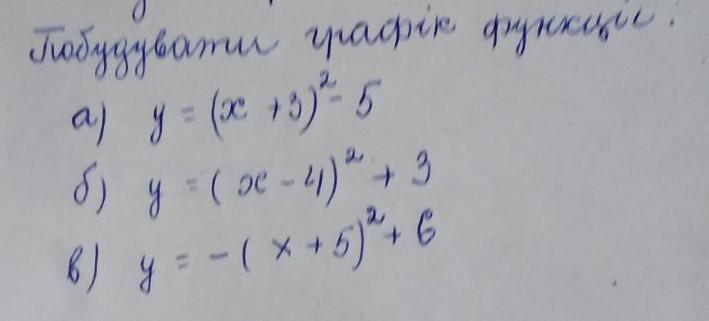 Побудувати графік функції:
а) y = (x + 3)² - 5
б) y = (x - 4)² + 3
в) y = -(x + 5)² + 6